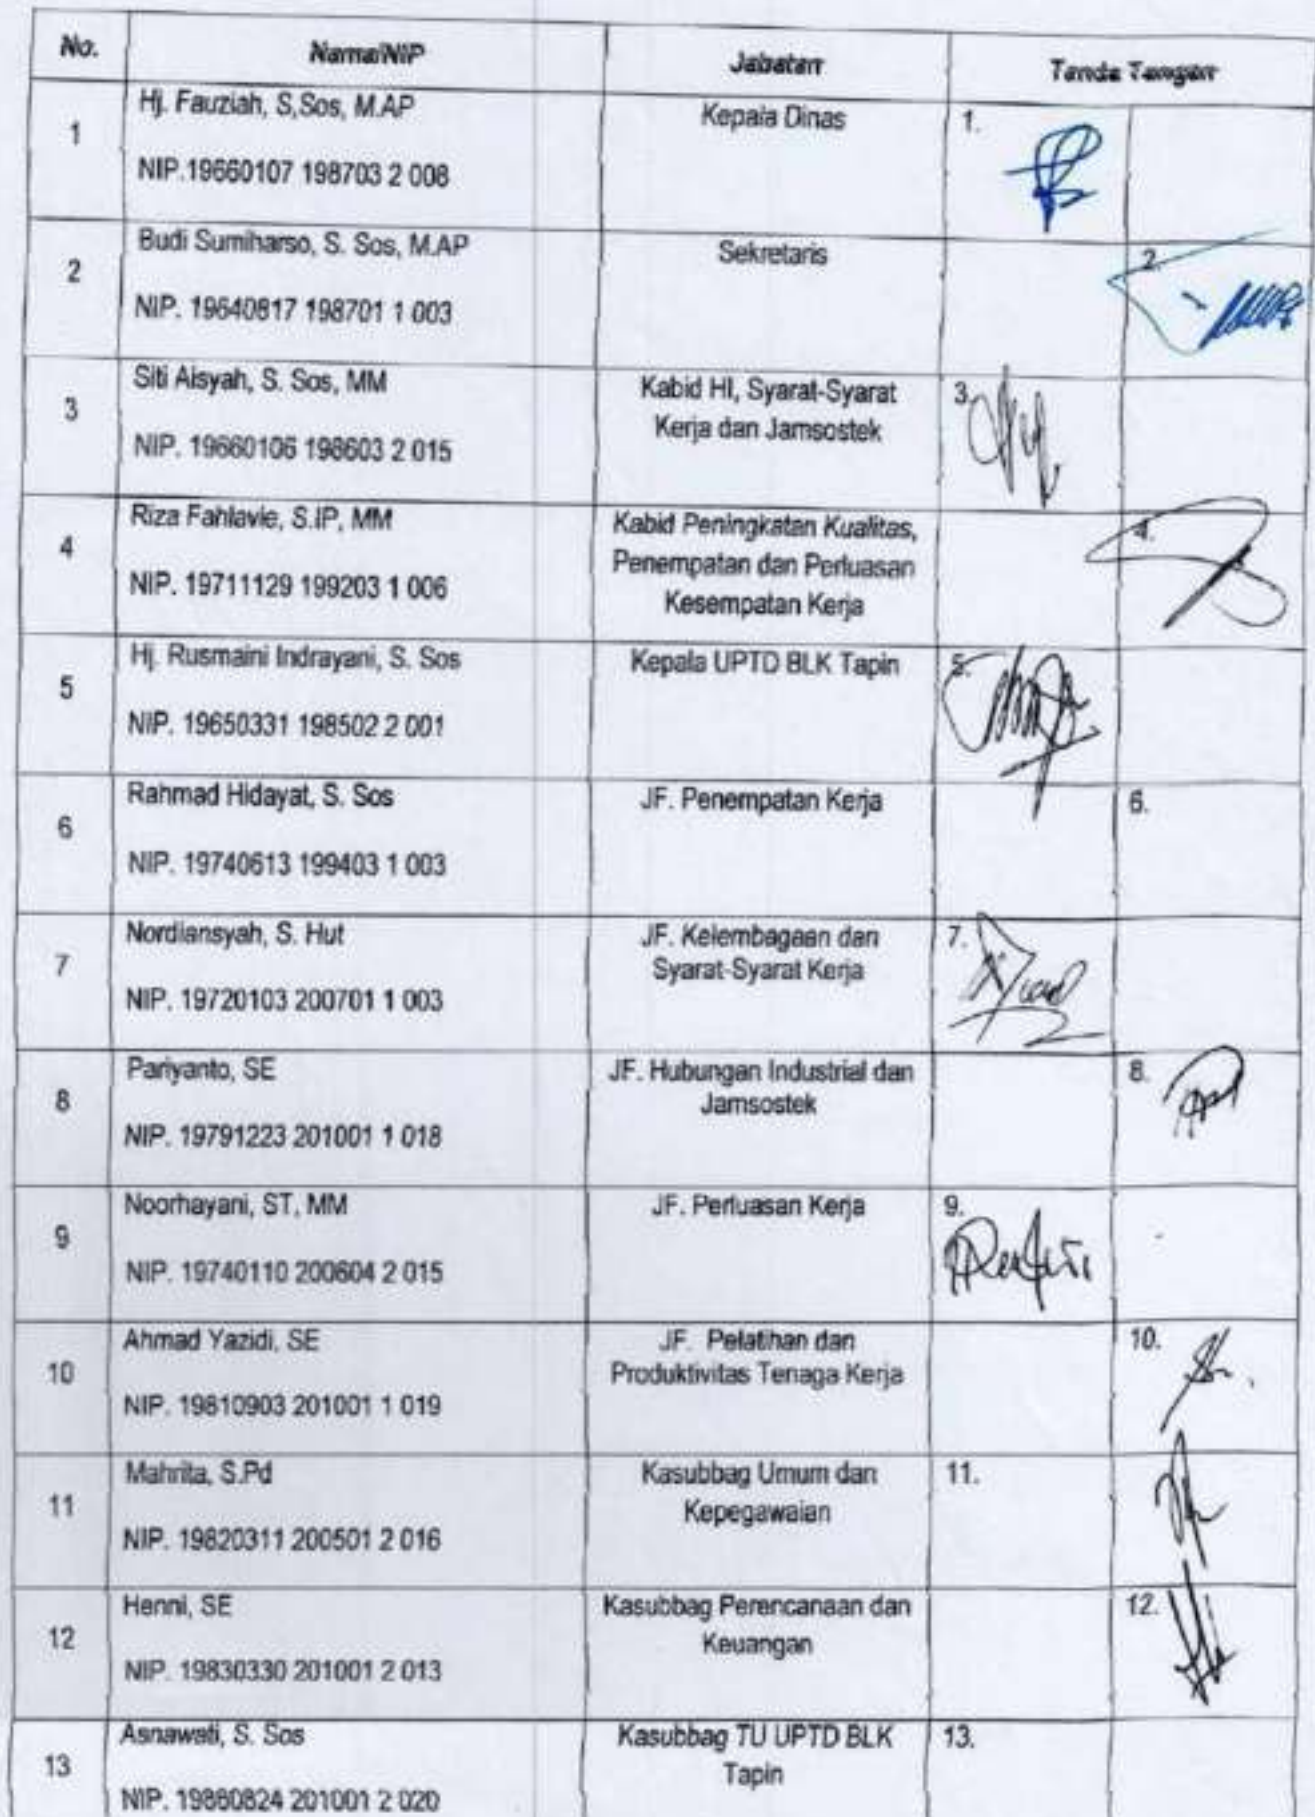 No.
Nama/NIP
Jabatan
Tanda Tangan
1
Hj. Fauziah, S,Sos, M.AP
NIP.19660107 198703 2 008
Kepala Dinas
1.
2
Budi Sumiharso, S. Sos, M.AP
NIP. 19640817 198701 1 003
Sekretaris
2.
3
Siti Aisyah, S. Sos, MM
NIP. 19660106 198603 2 015
Kabid HI, Syarat-Syarat
Kerja dan Jamsostek
3.
4
Riza Fahlavie, S.IP, MM
NIP. 19711129 199203 1 006
Kabid Peningkatan Kualitas,
Penempatan dan Perluasan
Kesempatan Kerja
4.
5
Hj. Rusmaini Indrayani, S. Sos
NIP. 19650331 198502 2 001
Kepala UPTD BLK Tapin
5.
6
Rahmad Hidayat, S. Sos
NIP. 19740613 199403 1 003
JF. Penempatan Kerja
6.
7
Nordiansyah, S. Hut
NIP. 19720103 200701 1 003
JF. Kelembagaan dan
Syarat-Syarat Kerja
7.
8
Pariyanto, SE
NIP. 19791223 201001 1 018
JF. Hubungan Industrial dan
Jamsostek
8.
9
Noorhayani, ST, MM
NIP. 19740110 200604 2 015
JF. Perluasan Kerja
9.
10
Ahmad Yazidi, SE
NIP. 19810903 201001 1 019
JF. Pelatihan dan
Produktivitas Tenaga Kerja
10.
11
Mahrita, S.Pd
NIP. 19820311 200501 2 016
Kasubbag Umum dan
Kepegawaian
11.
12
Henni, SE
NIP. 19830330 201001 2 013
Kasubbag Perencanaan dan
Keuangan
12.
13
Asnawati, S. Sos
NIP. 19860824 201001 2 020
Kasubbag TU UPTD BLK
Tapin
13.